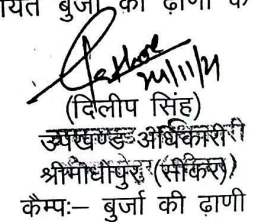 बुर्जा की ढ़ाणी के
24/11/21
(दिलीप सिंह)
उपखण्ड अधिकारी
श्रीमाधोपुर (सीकर)
कैम्पः– बुर्जा की ढाणी